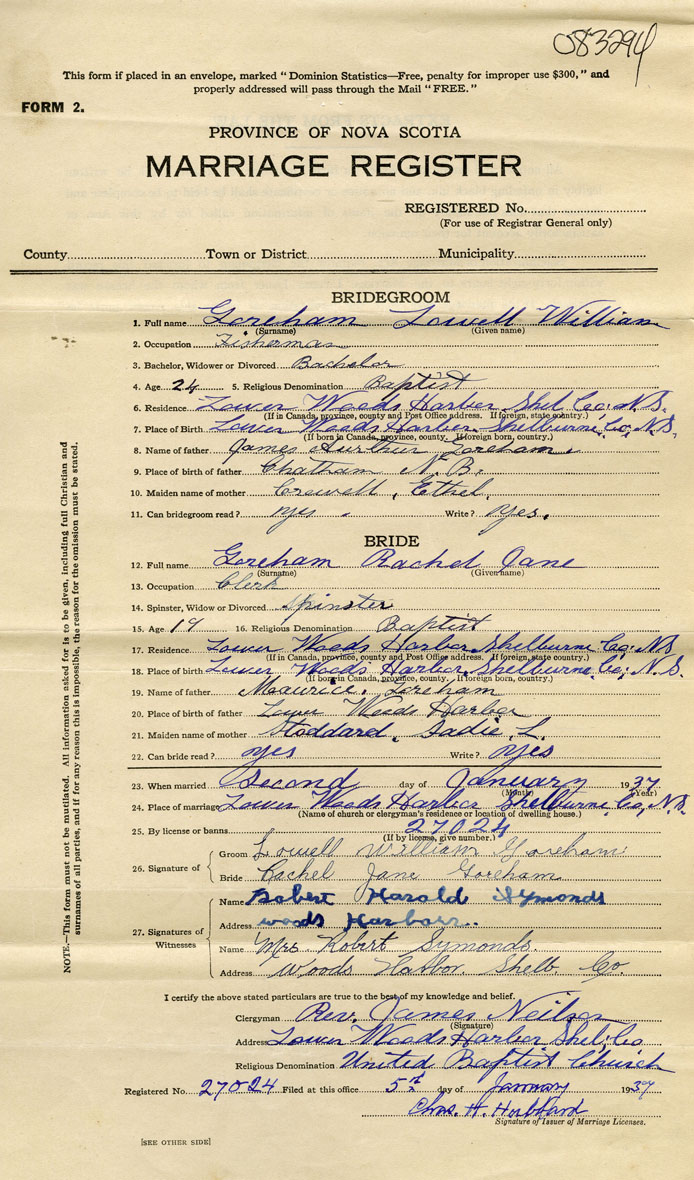 083294
This form if placed in an envelope, marked "Dominion Statistics—Free, penalty for improper use $300," and
properly addressed will pass through the Mail "FREE."
FORM 2.
PROVINCE OF NOVA SCOTIA
MARRIAGE REGISTER
REGISTERED No.
(For use of Registrar General only)
County Town or District Municipality
BRIDEGROOM
1. Full name Goreham Lowell William
(Surname) (Given name)
2. Occupation Fisherman
3. Bachelor, Widower or Divorced Bachelor
4. Age 24 5. Religious Denomination Baptist
6. Residence Lower Woods Harbor Shel. Co. N.S.
(If in Canada, province, county and Post Office address. If foreign, state country.)
7. Place of Birth Lower Woods Harbor Shelburne Co, N.S.
(If born in Canada, province, county. If foreign born, country.)
8. Name of father James Aurther Goreham.
9. Place of birth of father Chatham N. B.
10. Maiden name of mother Crewell, Ethel.
11. Can bridegroom read? yes. Write? yes.
BRIDE
12. Full name Goreham Rachel Jane
(Surname) (Given name)
13. Occupation Clerk
14. Spinster, Widow or Divorced Spinster
15. Age 19 16. Religious Denomination Baptist
17. Residence Lower Woods Harbor Shelburne Co. N.S
(If in Canada, province, county and Post Office address. If foreign, state country.)
18. Place of birth Lower Woods Harbor, Shelburne Co, N.S.
(If born in Canada, province, county. If foreign born, country.)
19. Name of father Maurice. Goreham
20. Place of birth of father Lower Woods Harbor
21. Maiden name of mother Stoddard, Sadie L.
22. Can bride read? yes Write? yes
23. When married Second day of January 1937
(Month) (Year)
24. Place of marriage Lower Woods Harbor Shelburne, Co, N.S
(Name of church or clergyman's residence or location of dwelling house.)
25. By license or banns 27024
(If by license, give number.)
26. Signature of Groom Lowell William Goreham
Bride Rachel Jane Goreham
27. Signatures of Witnesses Name Robert Harold Symonds
Address woods Harborr.
Name Mrs Robert Symonds.
Address Woods Harbor Shelb. Co.
I certify the above stated particulars are true to the best of my knowledge and belief.
Clergyman Rev. James Neilson
(Signature)
Address Lower Woods Harbor Shel. Co
Religious Denomination United Baptist Church
Registered No. 27024 Filed at this office 5th day of January 1937
Chas. H. Hubbard
Signature of Issuer of Marriage Licenses.
[SEE OTHER SIDE]
NOTE.—This form must not be mutilated. All information asked for is to be given, including full Christian and
surnames of all parties, and if for any reason this is impossible, the reason for the omission must be stated.